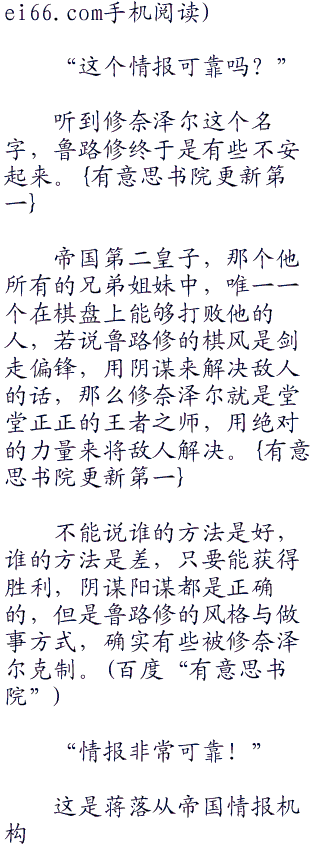 ei66.com手机阅读)
“这个情报可靠吗？”
听到修奈泽尔这个名
字，鲁路修终于是有些不安
起来。{有意思书院更新第
一}
帝国第二皇子，那个他
所有的兄弟姐妹中，唯一一
个在棋盘上能够打败他的
人，若说鲁路修的棋风是剑
走偏锋，用阴谋来解决敌人
的话，那么修奈泽尔就是堂
堂正正的王者之师，用绝对
的力量来将敌人解决。{有意
思书院更新第一}
不能说谁的方法是好，
谁的方法是差，只要能获得
胜利，阴谋阳谋都是正确
的，但是鲁路修的风格与做
事方式，确实有些被修奈泽
尔克制。(百度“有意思书
院”)
“情报非常可靠！”
这是蒋落从帝国情报机
构